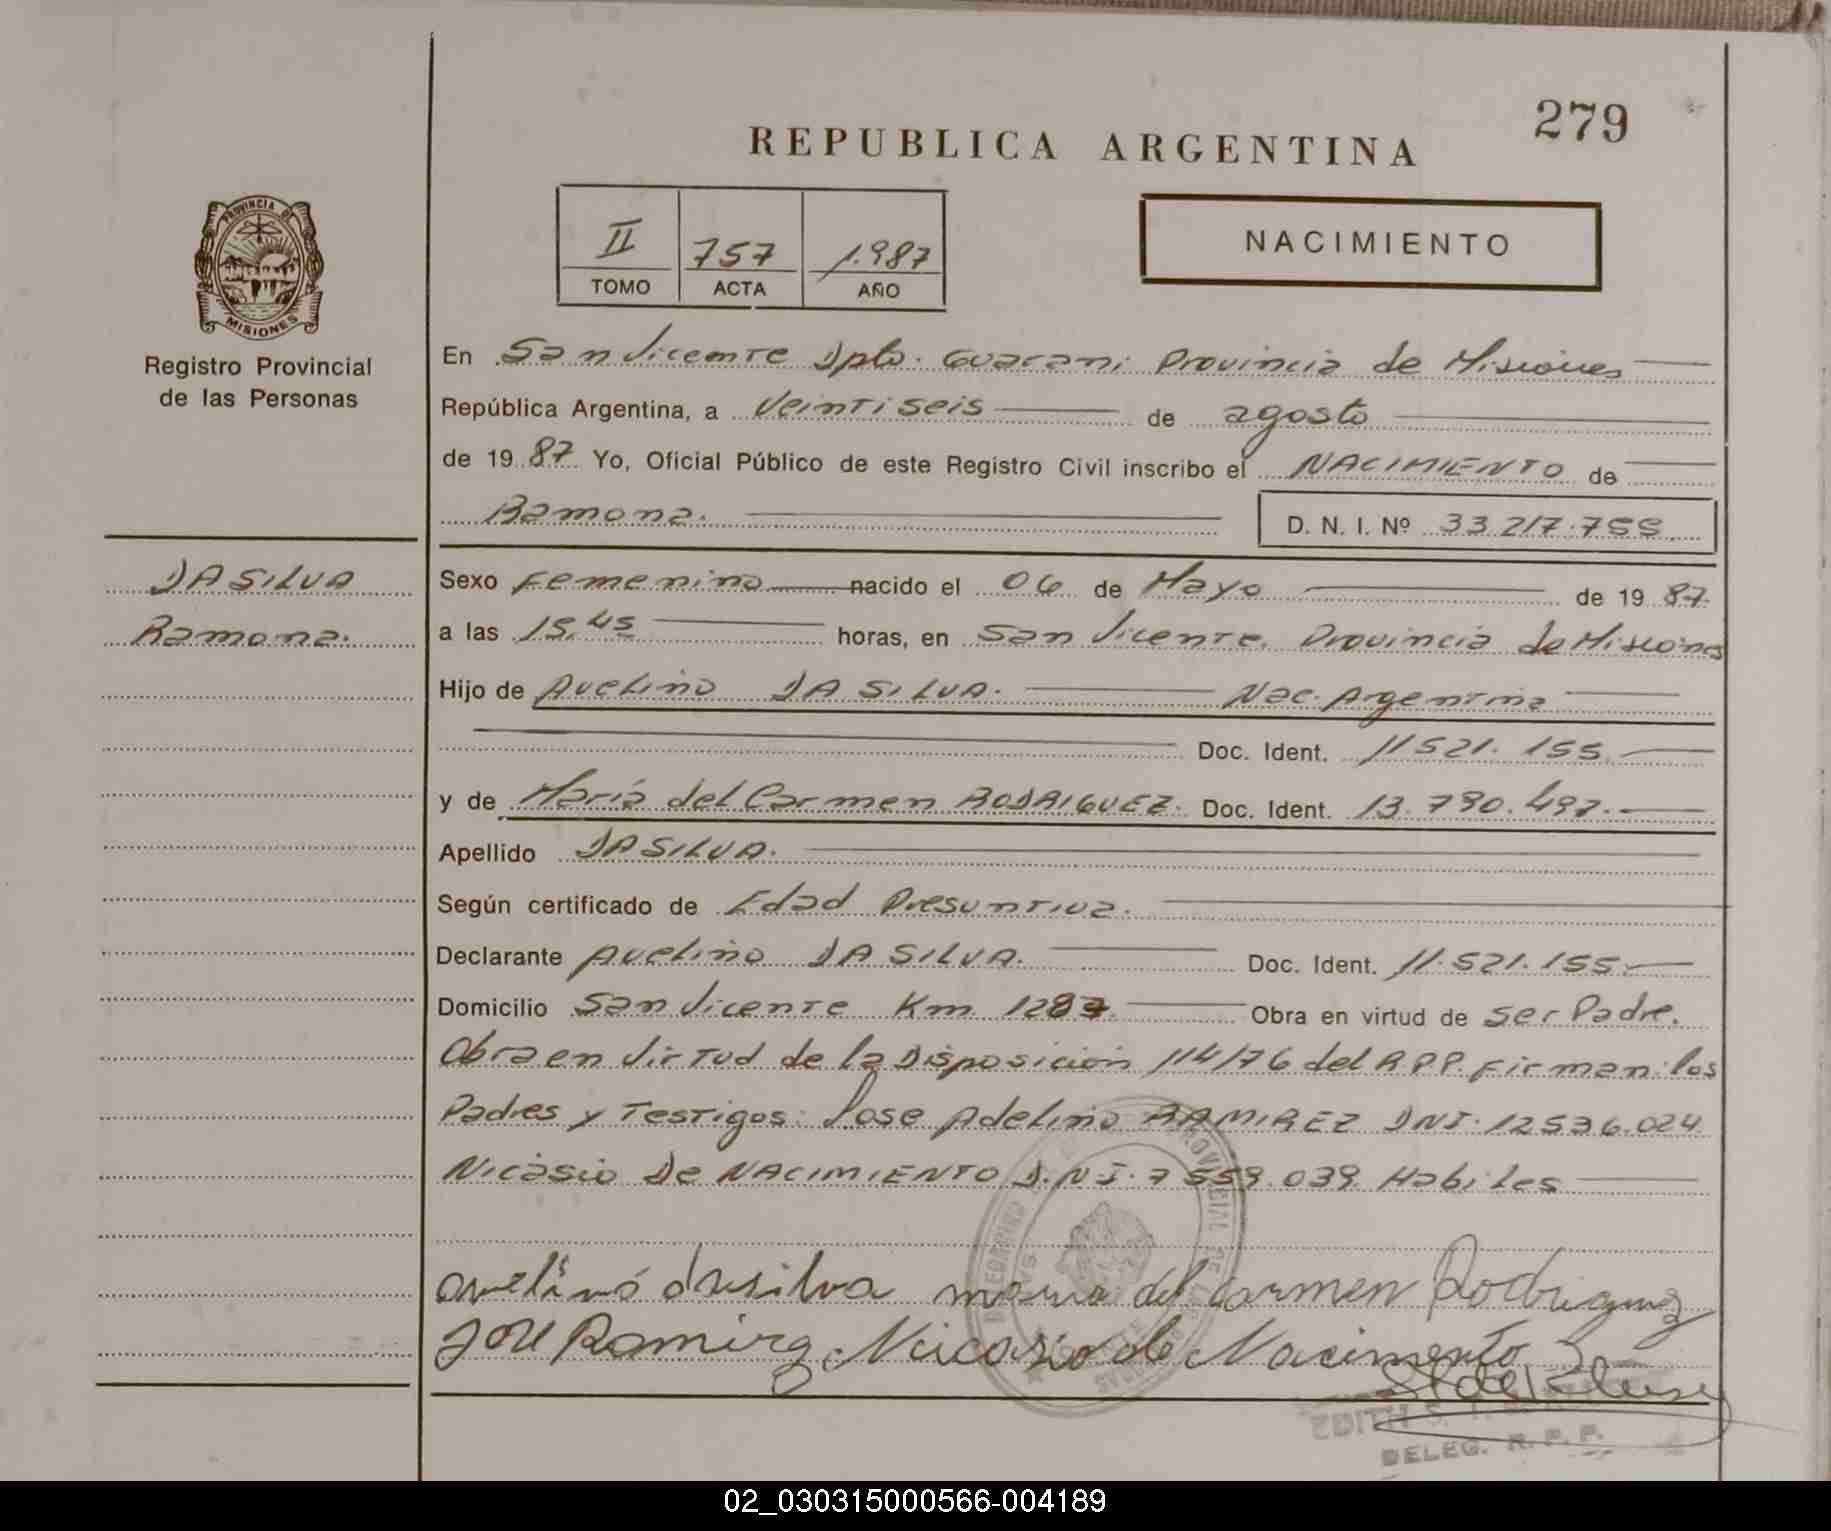 279
REPUBLICA ARGENTINA
II 757 1.987
TOMO ACTA AÑO
NACIMIENTO
PROVINCIA DE
MISIONES
Registro Provincial
de las Personas
En San Vicente Dpto. Guarani Provincia de Misiones
República Argentina, a Veintiseis de agosto
de 19 87 Yo, Oficial Público de este Registro Civil inscribo el NACIMIENTO de
Ramona.
D. N. I. Nº 33.217.755
DA SILVA
Ramona.
Sexo Femenino nacido el 06 de Mayo de 19 87.
a las 15,45 horas, en San Vicente. Provincia de Misiones
Hijo de Avelino DA SILVA. Nac. Argentina
Doc. Ident. 11521.155.
y de María del Carmen RODRIGUEZ. Doc. Ident. 13.790.497.
Apellido DA SILVA.
Según certificado de Edad Presuntiva.
Declarante Avelino DA SILVA. Doc. Ident. 11.521.155
Domicilio San Vicente Km 1287. Obra en virtud de ser Padre.
Obra en Virtud de la Disposición 114/76 del R.P.P. Firman: los
Padres y Testigos: Jose Adelino RAMIREZ DNI. 12536.024
Nicasio De NACIMIENTO D.N.I. 7 559.039. Habiles
avelino dasilva maria del carmen Rodriguez
José Ramirez. Nicasio de Nacimento
EDITH S. T.
DELEG. R. P. P.
02_030315000566-004189